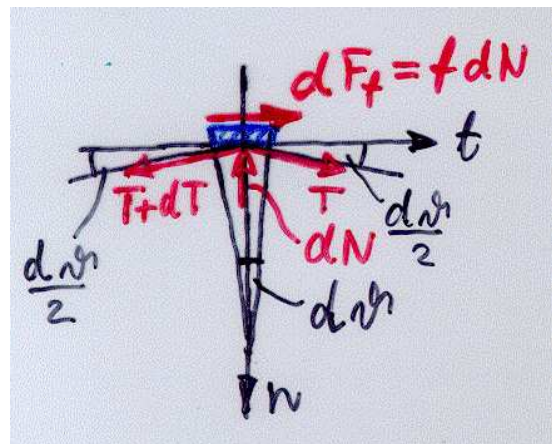 dF_f = f dN
t
T+dT
T
dϑ/2
dN
dϑ/2
dϑ
n